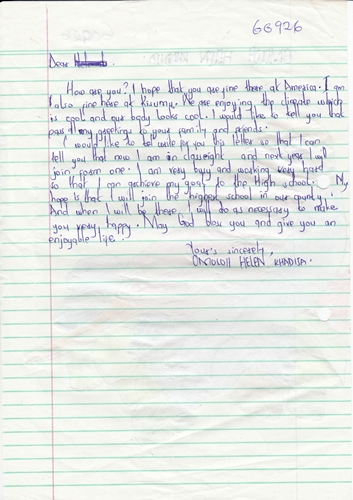 68926
Dear
How are you? I hope that you are fine there at America. I am
also fine here at Kisumu. We are enjoying the climate which
is cool and our body looks cool. I would like to tell you that
pass my greetings to your family and friends.
I would like to write for you this letter so that I can
tell you that now I am in class eight and next year I will
join form one. I am very busy and working very hard
so that I can achieve my goal to the High school. My
hope is that I will join the biggest school in our county.
And when I will be there I will do as necessary to make
you very happy. May God bless you and give you an
enjoyable life.
Your's sincerely,
HELEN KHADISA.